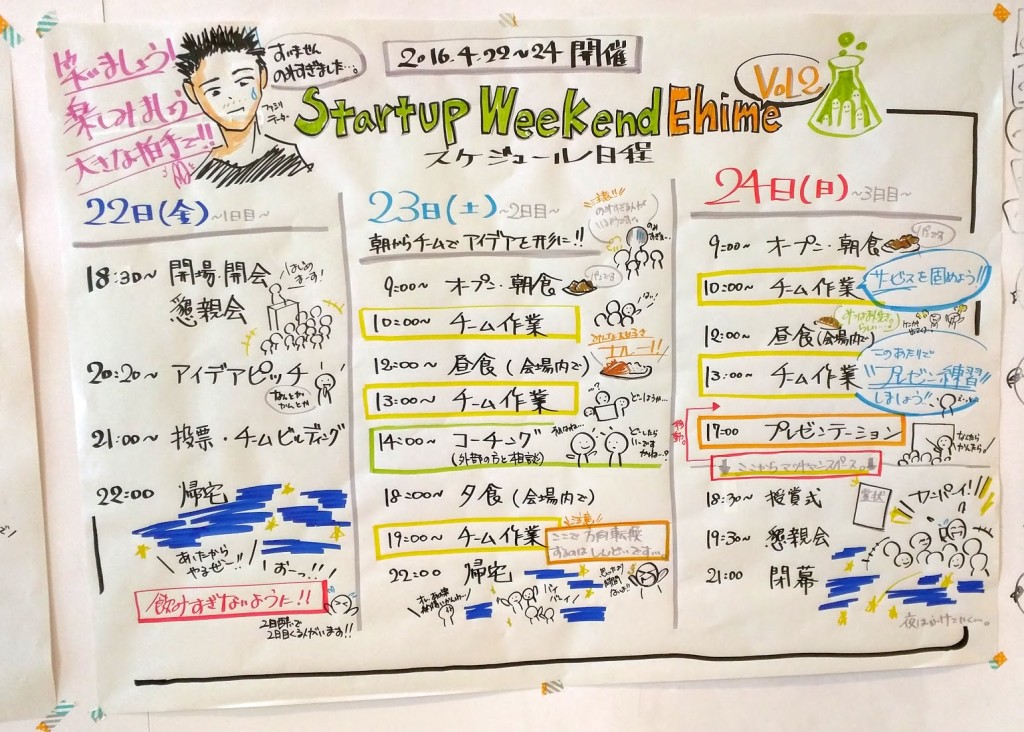 笑いましょう!
楽しみましょう
大きな拍手で!!
すいません
のみすぎました…。
ファシリ
テーター
2016.4.22~24 開催
Startup Weekend Ehime
Vol.2
スケジュール/日程
22日(金) ~1日目~
18:30~ 開場・開会
懇親会
はじめ
まーす!
20:20~ アイデアピッチ
なんとか
かんとか
21:00~ 投票・チームビルディング
22:00 帰宅
あしたから
やるぜー!!
おーっ!!
飲みすぎないように!!
23日(土) ~2日目~
朝からチームでアイデアを形に!!
9:00~ オープン・朝食
パンです
10:00~ チーム作業
はい!
12:00~ 昼食(会場内で)
みんな大好き
カレー!!
13:00~ チーム作業
どーしよう…
14:00~ コーチング
(外部の方と相談)
どーしたら
いーです
かねー?
18:00~ 夕食(会場内で)
19:00~ チーム作業
注意!!
ここで方向転換
するのはしんどいです…。
22:00 帰宅
バイ
バーイ
24日(日) ~3日目~
9:00~ オープン・朝食
パンです
10:00~ チーム作業
サービスを固めよう!!
12:00~ 昼食(会場内で)
13:00~ チーム作業
このあたりで
"プレゼン練習"
しましょう!!
17:00 プレゼンテーション
なんたら
かんたら。
18:30~ 授賞式
賞状
カンパーイ!!
19:30~ 懇親会
21:00 閉幕